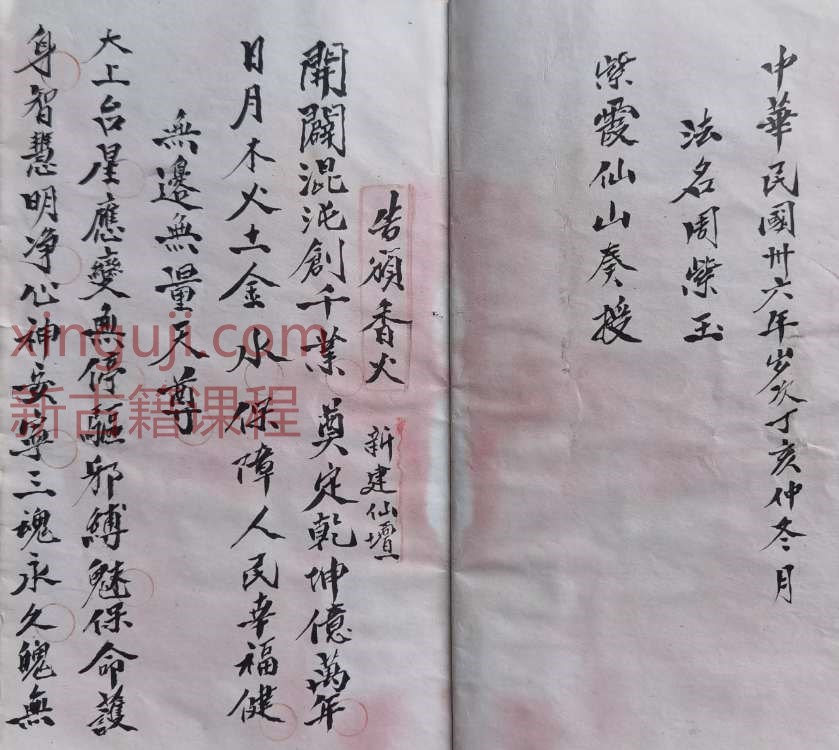 中華民國卅六年歲次丁亥仲冬月
法名周紫玉
紫霞仙山奏授
告領香火
新建仙壇
開闢混沌創千業 奠定乾坤億萬年
日月木火土金水 保障人民幸福健
無邊無量天尊
太上台星應變無停驅邪縛魅保命護
身智慧明净心神安寧三魂永久魄無
xinguji.com
新古籍课程